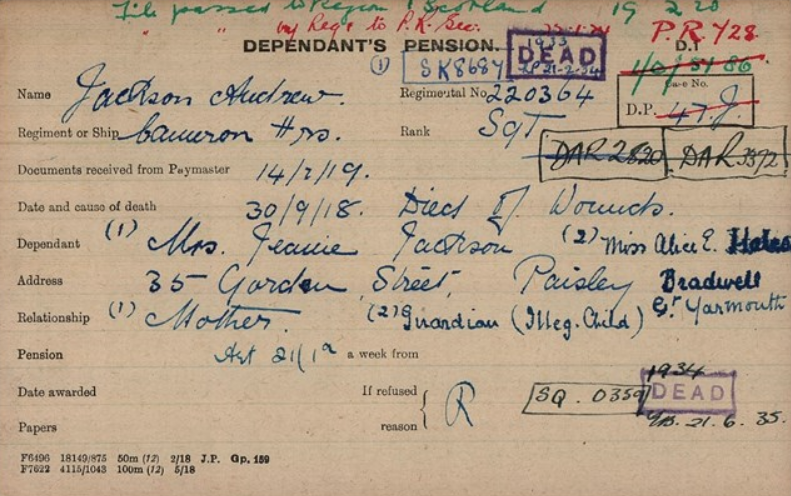 File passed to Region 1 Scotland 19 2 20
" " by Regs to P.R. Sec. 25.1.24 P.R. 728
DEPENDANT'S PENSION. 1933 DEAD D.1
(1) SK8687 21-2-34 1/D/5186
Name Jackson Andrew. Regimental No. 220364 Case No.
D.P. 47.J.
Regiment or Ship Cameron Hrs. Rank Sgt
DAR 2820 DAR 3372
Documents received from Paymaster 14/2/19.
Date and cause of death 30/9/18. Died of Wounds.
Dependant (1) Mrs. Jeanie Jackson (2) Miss Alice E. Hales
Address 35 Gordon Street, Paisley Bradwell
Gt Yarmouth
Relationship (1) Mother. (2) Guardian (Illeg. Child)
Pension Art 21/1a a week from
Date awarded If refused reason { R SQ. 0359 1934 DEAD
Papers 21.6.35.
F6496 18149/875 50m (12) 2/18 J.P. Gp. 159
F7622 4115/1043 100m (12) 5/18